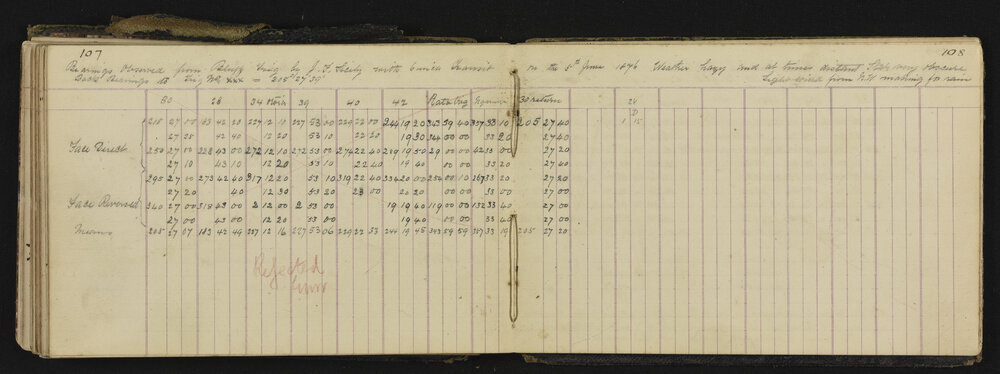 107
108
Bearings Observed from Bluff Trig by J. F. Seely with 6 inch Transit on the 5th June 1896 Weather hazy and at times distant very obscure
Back Bearings to Trig XXX = 205° 27' 39" Light wind from N.W. making for rain
30 28 34 North 39 40 42 Rata Trig 30 return 24
205 27 00 183 42 20 227 12 10 227 53 00 229 22 00 244 19 20 343 59 40 337 33 10 205 27 40 1 15
27 25 42 40 12 20 53 10 22 20 19 30 344 00 00 33 20 27 40
Face Direct 250 27 00 228 43 00 272 12 10 272 53 00 274 22 40 289 19 50 29 00 00 33 00 27 20
27 10 43 10 12 20 53 10 22 40 19 40 00 00 33 20 27 40
295 27 10 273 42 40 317 12 20 53 10 319 22 40 334 20 00 00 10 33 20 27 20
27 20 40 12 30 53 20 23 00 20 20 33 00 27 00
Face Reversed 340 27 00 318 43 00 2 12 00 2 53 00 19 19 40 119 00 00 132 33 40 27 00
27 00 43 00 12 20 53 00 19 40 00 00 33 40 27 00
Means 205 27 07 183 42 49 227 12 16 227 53 06 229 22 33 244 19 45 343 59 59 337 33 19 205 27 20
Rejected